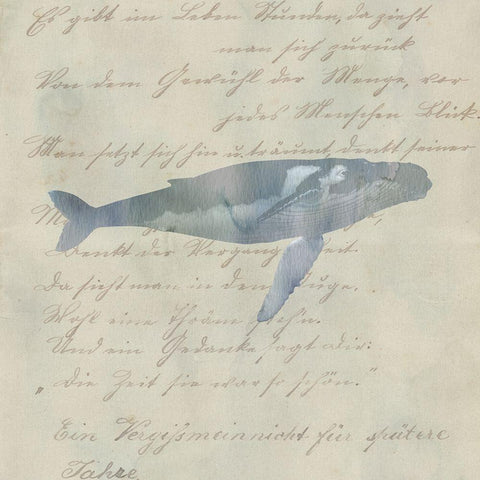 Es gibt im Leben Stunden, da zieht
man sich zurück
Von dem Gewühl der Menge, vor
jedes Menschen Blick.
Man setzt sich hin u. träumt, denkt seiner
Denkt der Vergangenheit.
Da sieht man in dem Auge.
Wohl eine Thräm steh'n.
Und ein Gedanke sagt Dir:
„Die Zeit sie war so schön."
Ein Vergißmeinnicht für spätere
Jahre.